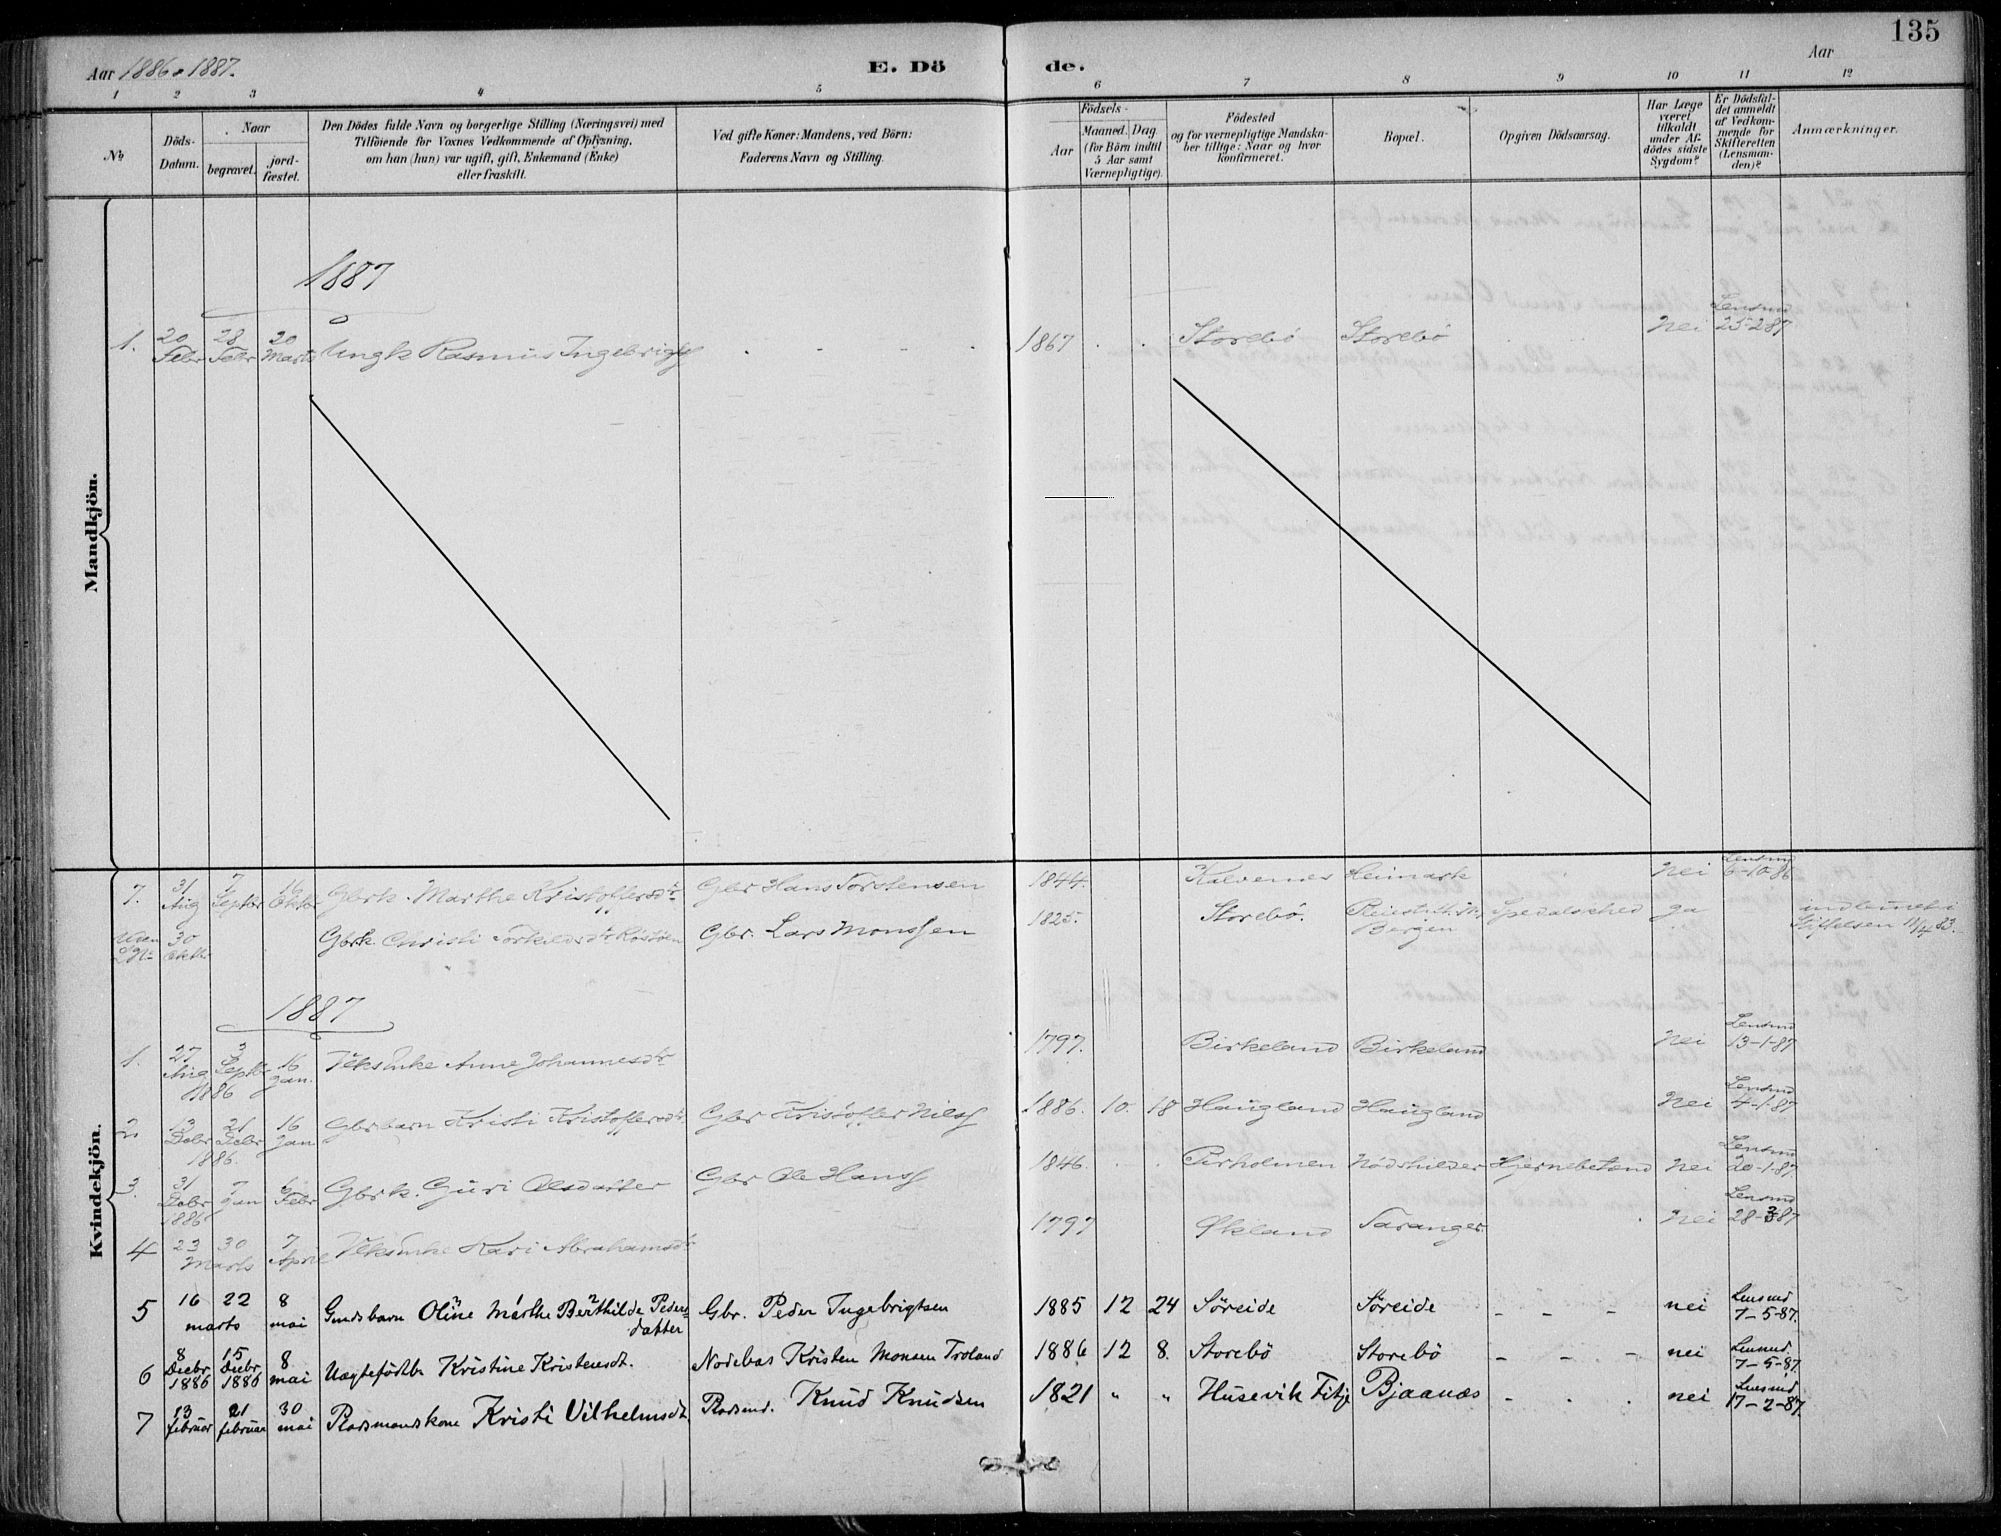 135
Aar 1886 & 1887.
E. Dö
de.
Aar
1 2 3 4 5 6 7 8 9 10 11 12
No
Döds-Datum.
Naar
begravet.
jord-fæstet.
Den Dödes fulde Navn og borgerlige Stilling (Næringsvei) med
Tilföiende for Voxnes Vedkommende af Oplysning,
om han (hun) var ugift, gift, Enkemand (Enke)
eller fraskilt.
Ved gifte Koner: Mandens, ved Börn:
Faderens Navn og Stilling.
Födsels-
Aar
Maaned. Dag.
(for Börn indtil
5 Aar samt
Værnepligtige).
Födested
og for værnepligtige Mandska-
ber tillige: Naar og hvor
konfirmeret.
Bopæl.
Opgiven Dödsaarsag.
Har Læge
været
tilkaldt
under Af-
dödes sidste
Sygdom?
Er Dödsfal-
det anmeldt
af Vedkom-
mende for
Skifteretten
(Lensman-
den)?
Anmærkninger.
Mandkjön.
1887
1. 20 Febr 28 Febr 20 Marts Ungk Rasmus Ingebrigts 1867 Storebö Storebö Nei Lensmd 25-2-87
Kvindekjön.
7. 31 Aug 7 Septbr 16 Oktbr Gbrk. Marthe Kristoffersdtr Gbr Hans Torstensen 1844. Kalvenes Heimark Nei Lensmd 6-10-86
Uden No 30 Oktb Gbrk. Christi Torkildsdtr Gbr. Lars Monssen 1825. Storebö. Bergen Spedalsched ja indkommet i Stiftelsen 11/4 83.
1887
1. 27 Aug 3 Septbr 1886 16 Jan. Vlks Enke Anne Johannesdtr 1797. Birkeland Birkeland Nei Lensmd 13-1-87
2. 13 Debr 21 Debr 1886. 16 Jan Gbr barn Kristi Kristoffersdtr Gbr Kristoffer Nilss 1886. 10. 18 Haugland Haugland Nei Lensmd 4-1-87
3. 31 Debr 1886 7 Jan 6 Febr Gbrk. Guri Olsdatter Gbr Ole Hanss 1846. Perholmen Nödshilder Hjernebetænd Nei Lensmd 20-1-87
4 23 30 Marts 7 April Vlks Enke Kari Abrahamsdtr 1797 Økland Taranger Nei Lensmd 28-3-87
5 16 22 marts 8 mai Gmdsbarn Oline Marthe Berthilde Peders-
datter Gbr. Peder Ingebrigtsen 1885 12 24 Søreide Søreide nei Lensmd 7-5-87.
6 8 Decbr 1886 15 Decbr 1886 8 mai Uægtefödtb Kristine Kristensdt. Nodebas Kristen Monsen Troland 1886 12 8. Storebö Storebö nei Lensmd. 7-5-87
7 13 februar 21 februar 30 mai Pladsmandskone Kristi Vilhelmsdt. Pladsmd. Knud Knudsen 1821 " " Husevik Fitje Bjaanæs nei Lensmd. 17-2-87.